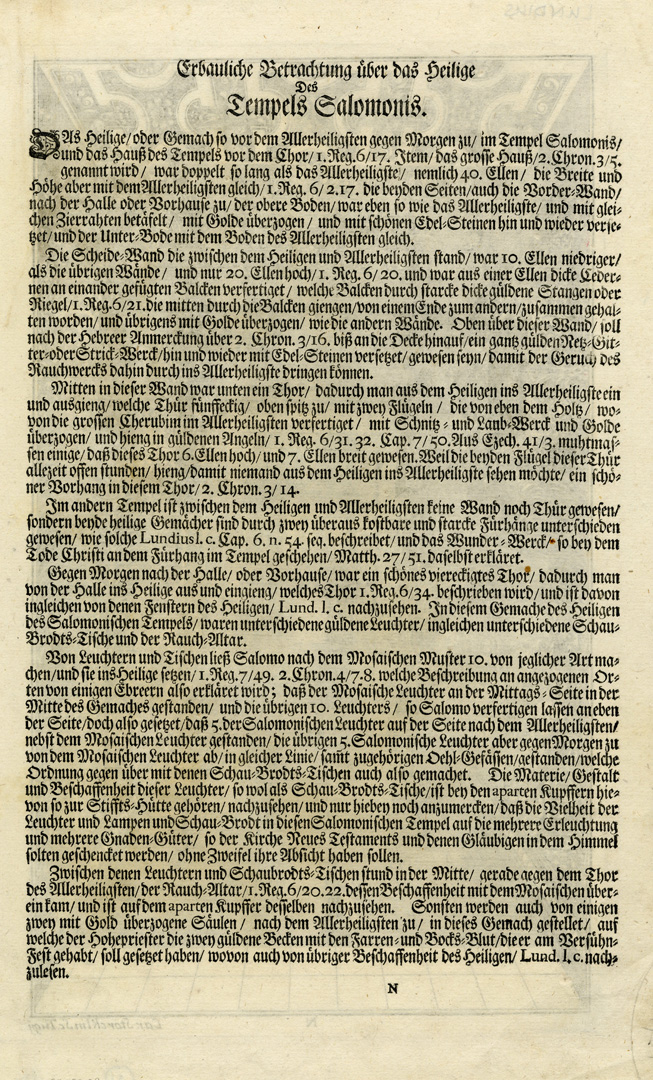 Erbauliche Betrachtung über das Heilige
Des
Tempels Salomonis.
DAs Heilige/ oder Gemach so vor dem Allerheiligsten gegen Morgen zu/ im Tempel Salomonis/
und das Hauß des Tempels vor dem Chor/ 1. Reg. 6/17. Item/ das grosse Hauß/ 2. Chron. 3/5.
genannt wird/ war doppelt so lang als das Allerheiligste/ nemlich 40. Ellen/ die Breite und
Höhe aber mit dem Allerheiligsten gleich/ 1. Reg. 6/ 2.17. die beyden Seiten/ auch die Vorder-Wand/
nach der Halle oder Vorhause zu/ der obere Boden/ war eben so wie das Allerheiligste/ und mit glei-
chen Zierrahten betäfelt/ mit Golde überzogen/ und mit schönen Edel-Steinen hin und wieder verse-
tzet/ und der Unter-Bode mit dem Boden des Allerheiligsten gleich.
Die Scheide-Wand die zwischen dem Heiligen und Allerheiligsten stand/ war 10. Ellen niedriger/
als die übrigen Wände/ und nur 20. Ellen hoch/ 1. Reg. 6/ 20. und war aus einer Ellen dicke Ceder-
nen an einander gefügten Balcken verfertiget/ welche Balcken durch starcke dicke güldene Stangen oder
Riegel/ 1. Reg. 6/21. die mitten durch die Balcken giengen/ von einem Ende zum andern/ zusammen gehal-
ten worden/ und übrigens mit Golde überzogen/ wie die andern Wände. Oben über dieser Wand/ soll
nach der Hebreer Anmerckung über 2. Chron. 3/16. biß an die Decke hinauf/ ein gantz gülden Netz-Git-
ter- oder Strick-Werck/ hin und wieder mit Edel-Steinen versetzet/ gewesen seyn/ damit der Geruch des
Rauchwercks dahin durch ins Allerheiligste dringen können.
Mitten in dieser Wand war unten ein Thor/ dadurch man aus dem Heiligen ins Allerheiligste ein
und ausgieng/ welche Thür fünffeckig/ oben spitz zu/ mit zwey Flügeln/ die von eben dem Holtz/ wo-
von die grossen Cherubim im Allerheiligsten verfertiget/ mit Schnitz- und Laub-Werck und Golde
überzogen/ und hieng in güldenen Angeln/ 1. Reg. 6/31. 32. Cap. 7/ 50. Aus Ezech. 41/3. muhtmas-
sen einige/ daß dieses Thor 6. Ellen hoch/ und 7. Ellen breit gewesen. Weil die beyden Flügel dieser Thür
allezeit offen stunden/ hieng/ damit niemand aus dem Heiligen ins Allerheiligste sehen möchte/ ein schö-
ner Vorhang in diesem Thor/ 2. Chron. 3/ 14.
Im andern Tempel ist zwischen dem Heiligen und Allerheiligsten keine Wand noch Thür gewesen/
sondern beyde heilige Gemächer sind durch zwey überaus kostbare und starcke Fürhänge unterschieden
gewesen/ wie solche Lundius l. c. Cap. 6. n. 54. seq. beschreibet/ und das Wunder-Werck/ so bey dem
Tode Christi an dem Fürhang im Tempel geschehen/ Matth. 27/ 51. daselbst erkläret.
Gegen Morgen nach der Halle/ oder Vorhause/ war ein schönes viereckigtes Thor/ dadurch man
von der Halle ins Heilige aus und eingieng/ welches Thor 1. Reg. 6/34. beschrieben wird/ und ist davon
ingleichen von denen Fenstern des Heiligen/ Lund. l. c. nachzusehen. In diesem Gemache des Heiligen
des Salomonischen Tempels/ waren unterschiedene güldene Leuchter/ ingleichen unterschiedene Schau-
Brodts-Tische und der Rauch-Altar.
Von Leuchtern und Tischen ließ Salomo nach dem Mosaischen Muster 10. von jeglicher Art ma-
chen/ und sie ins Heilige setzen/ 1. Reg. 7/49. 2. Chron. 4/7.8. welche Beschreibung an angezogenen Or-
ten von einigen Ebreern also erkläret wird; daß der Mosaische Leuchter an der Mittags-Seite in der
Mitte des Gemaches gestanden/ und die übrigen 10. Leuchters/ so Salomo verfertigen lassen an eben
der Seite/ doch also gesetzet/ daß 5. der Salomonischen Leuchter auf der Seite nach dem Allerheiligsten/
nebst dem Mosaischen Leuchter gestanden/ die übrigen 5. Salomonische Leuchter aber gegen Morgen zu
von dem Mosaischen Leuchter ab/ in gleicher Linie/ samt zugehörigen Oehl-Gefässen/ gestanden/ welche
Ordnung gegen über mit denen Schau-Brodts-Tischen auch also gemachet. Die Materie/ Gestalt
und Beschaffenheit dieser Leuchter/ so wol als Schau-Brodts-Tische/ ist bey den aparten Kupffern hie-
von so zur Stiffts-Hütte gehören/ nachzusehen/ und nur hiebey noch anzumercken/ daß die Vielheit der
Leuchter und Lampen und Schau-Brodt in diesen Salomonischen Tempel auf die mehrere Erleuchtung
und mehrere Gnaden-Güter/ so der Kirche Neues Testaments und denen Gläubigen in dem Himmel
solten geschencket werden/ ohne Zweifel ihre Absicht haben sollen.
Zwischen denen Leuchtern und Schaubrodts-Tischen stund in der Mitte/ gerade gegen dem Thor
des Allerheiligsten/ der Rauch-Altar/ 1. Reg. 6/20.22. dessen Beschaffenheit mit dem Mosaischen über-
ein kam/ und ist auf dem aparten Kupffer desselben nachzusehen. Sonsten werden auch von einigen
zwey mit Gold überzogene Säulen/ nach dem Allerheiligsten zu/ in dieses Gemach gestellet/ auf
welche der Hohepriester die zwey güldene Becken mit den Farren- und Bocks-Blut/ die er am Versühn-
Fest gehabt/ soll gesetzet haben/ wovon auch von übriger Beschaffenheit des Heiligen/ Lund. l. c. nach-
zulesen.
N